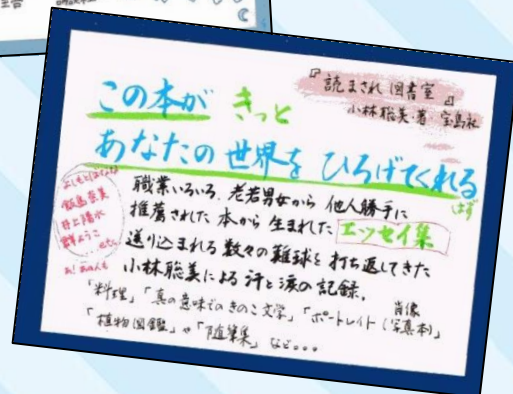 『読まされ図書室』
小林聡美・著 宝島社
この本が きっと
あなたの世界を ひろげてくれる
はず
よしもとばなな
飯島奈美
井上陽水
群ようこ
職業いろいろ、老若男女から 他人勝手に
推薦された 本から 生まれた エッセイ集
送り込まれる 数々の難球を 打ち返してきた
小林聡美による 汗と涙の記録。
「料理」「真の意味でのきのこ文学」「ポートレイト(肖像写真本)」
「植物図鑑」や「随筆集」など。。。